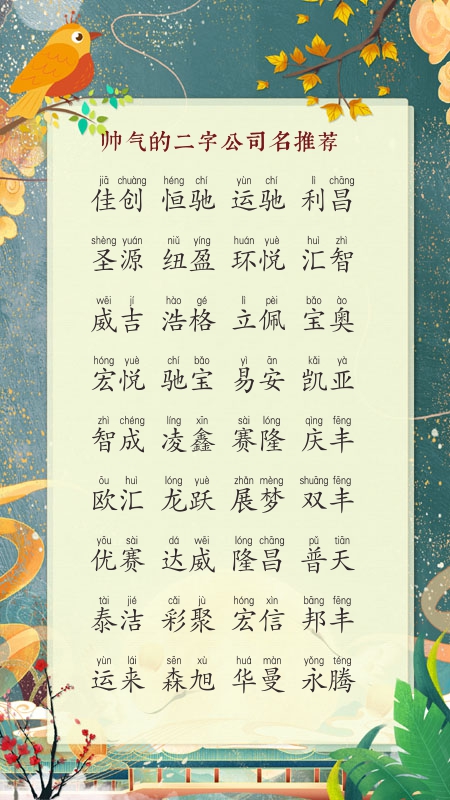 帅气的二字公司名推荐
jiā chuàng héng chí yùn chí lì chāng
佳创 恒驰 运驰 利昌
shèng yuán niǔ yíng huán yuè huì zhì
圣源 纽盈 环悦 汇智
wēi jí hào gé lì pèi bǎo ào
威吉 浩格 立佩 宝奥
hóng yuè chí bǎo yì ān kǎi yà
宏悦 驰宝 易安 凯亚
zhì chéng líng xīn sài lóng qìng fēng
智成 凌鑫 赛隆 庆丰
ōu huì lóng yuè zhǎn mèng shuāng fēng
欧汇 龙跃 展梦 双丰
yōu sài dá wēi lóng chāng pǔ tiān
优赛 达威 隆昌 普天
tài jié cǎi jù hóng xìn bāng fēng
泰洁 彩聚 宏信 邦丰
yùn lái sēn xù huá màn yǒng téng
运来 森旭 华曼 永腾